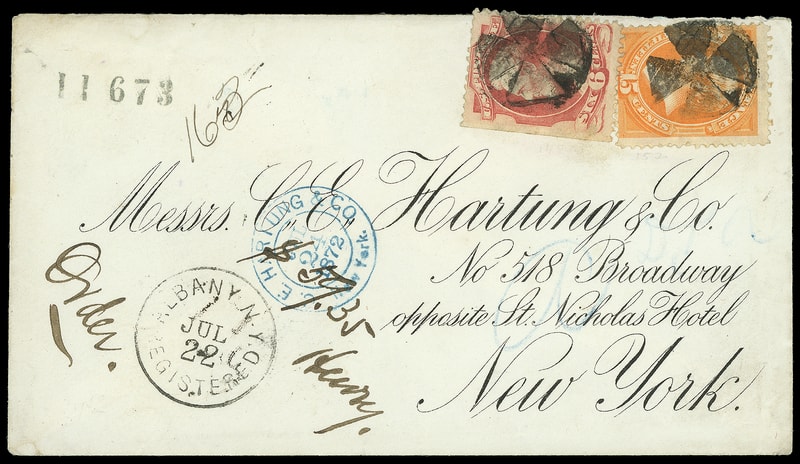 11673
Messrs. C. E. Hartung & Co.
No 518 Broadway
opposite St. Nicholas Hotel
New York.
Order.
$ 57.35
Henry.
HARTUNG & CO.
1872
New York.
ALBANY N.Y.
JUL
22
REGISTERED
SIX
CENTS